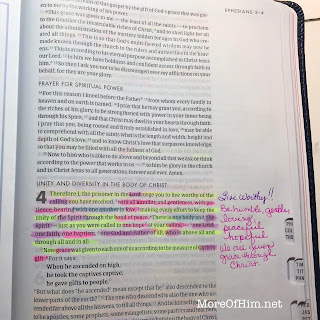 EPHESIANS 3–4
of this gospel by the gift of God's grace that was giv-
en to me by the working of his power.
⁸This grace was given to me — the least of all the saints — to proclaim
to the Gentiles the incalculable riches of Christ, ⁹and to shed light for all
about the administration of the mystery hidden for ages in God who cre-
ated all things. ¹⁰This is so that God's multi-faceted wisdom may now be
made known through the church to the rulers and authorities in the heav-
ens. ¹¹This is according to his eternal purpose accomplished in Christ Jesus
our Lord. ¹²In him we have boldness and confident access through faith in
him. ¹³So then I ask you not to be discouraged over my afflictions on your
behalf, for they are your glory.
PRAYER FOR SPIRITUAL POWER
¹⁴For this reason I kneel before the Father ¹⁵from whom every family in
heaven and on earth is named. ¹⁶I pray that he may grant you, according to
the riches of his glory, to be strengthened with power in your inner being
through his Spirit, ¹⁷and that Christ may dwell in your hearts through faith.
I pray that you, being rooted and firmly established in love, ¹⁸may be able
to comprehend with all the saints what is the length and width, height and
depth of God's love, ¹⁹and to know Christ's love that surpasses knowledge,
so that you may be filled with all the fullness of God.
²⁰Now to him who is able to do above and beyond all that we ask or think
according to the power that works in us — ²¹to him be glory in the church
and in Christ Jesus to all generations, forever and ever. Amen.
UNITY AND DIVERSITY IN THE BODY OF CHRIST
4 Therefore I, the prisoner in the Lord, urge you to live worthy of the
calling you have received, ²with all humility and gentleness, with pa-
tience, bearing with one another in love, ³making every effort to keep the
unity of the Spirit through the bond of peace. ⁴There is one body and one
Spirit — just as you were called to one hope at your calling — ⁵one Lord,
one faith, one baptism, ⁶one God and Father of all, who is above all and
through all and in all.
⁷Now grace was given to each one of us according to the measure of Christ's
gift. ⁸For it says:
When he ascended on high,
he took the captives captive;
he gave gifts to people.
⁹But what does "he ascended" mean except that he also descended to the
lower parts of the earth? ¹⁰The one who descended is also the one who as-
cended far above all the heavens, to fill all things. ¹¹And he himself gave some
to be apostles, some prophets, some evangelists, some pastors and teachers,
Live Worthy!!
Be humble, gentle,
loving
peaceful
hopeful
We are given
grace through
Christ
TIT
PHM
MoreOfHim.net